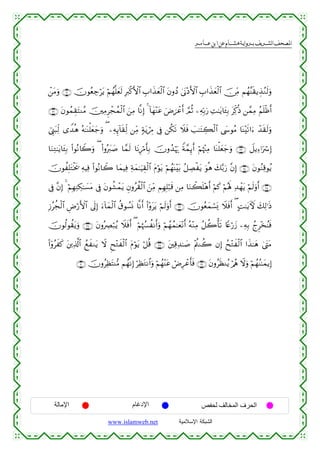 المصحف الشريف برواية هشام عن ابن عامر
وَلَنُذِيقَنَّهُم مِّنَ ٱلْعَذَابِ ٱلْأَدْنَىٰ دُونَ ٱلْعَذَابِ ٱلْأَكْبَرِ لَعَلَّهُمْ يَرْجِعُونَ ۝ وَمَنْ
أَظْلَمُ مِمَّن ذُكِّرَ بِـَٔايَـٰتِ رَبِّهِۦ ثُمَّ أَعْرَضَ عَنْهَآ ۚ إِنَّا مِنَ ٱلْمُجْرِمِينَ مُنتَقِمُونَ ۝
وَلَقَدْ ءَاتَيْنَا مُوسَى ٱلْكِتَـٰبَ فَلَا تَكُن فِى مِرْيَةٍ مِّن لِّقَآئِهِۦ ۖ وَجَعَلْنَـٰهُ هُدًى لِّبَنِىٓ
إِسْرَٰٓءِيلَ ۝ وَجَعَلْنَا مِنْهُمْ أَئِمَّةً يَهْدُونَ بِأَمْرِنَا لَمَّا صَبَرُوا۟ ۖ وَكَانُوا۟ بِـَٔايَـٰتِنَا
يُوقِنُونَ ۝ إِنَّ رَبَّكَ هُوَ يَفْصِلُ بَيْنَهُمْ يَوْمَ ٱلْقِيَـٰمَةِ فِيمَا كَانُوا۟ فِيهِ يَخْتَلِفُونَ
۝ أَوَلَمْ يَهْدِ لَهُمْ كَمْ أَهْلَكْنَا مِن قَبْلِهِم مِّنَ ٱلْقُرُونِ يَمْشُونَ فِى مَسَـٰكِنِهِمْ ۚ إِنَّ فِى
ذَٰلِكَ لَـَٔايَـٰتٍ ۖ أَفَلَا يَسْمَعُونَ ۝ أَوَلَمْ يَرَوْا۟ أَنَّا نَسُوقُ ٱلْمَآءَ إِلَى ٱلْأَرْضِ ٱلْجُرُزِ
فَنُخْرِجُ بِهِۦ زَرْعًا تَأْكُلُ مِنْهُ أَنْعَـٰمُهُمْ وَأَنفُسُهُمْ ۖ أَفَلَا يُبْصِرُونَ ۝ وَيَقُولُونَ
مَتَىٰ هَـٰذَا ٱلْفَتْحُ إِن كُنتُمْ صَـٰدِقِينَ ۝ قُلْ يَوْمَ ٱلْفَتْحِ لَا يَنفَعُ ٱلَّذِينَ كَفَرُوٓا۟
إِيمَـٰنُهُمْ وَلَا هُمْ يُنظَرُونَ ۝ فَأَعْرِضْ عَنْهُمْ وَٱنتَظِرْ إِنَّهُم مُّنتَظِرُونَ ۝
الحرف المخالف لحفص الإدغام الإمالة
الشبكة الإسلامية www.islamweb.net